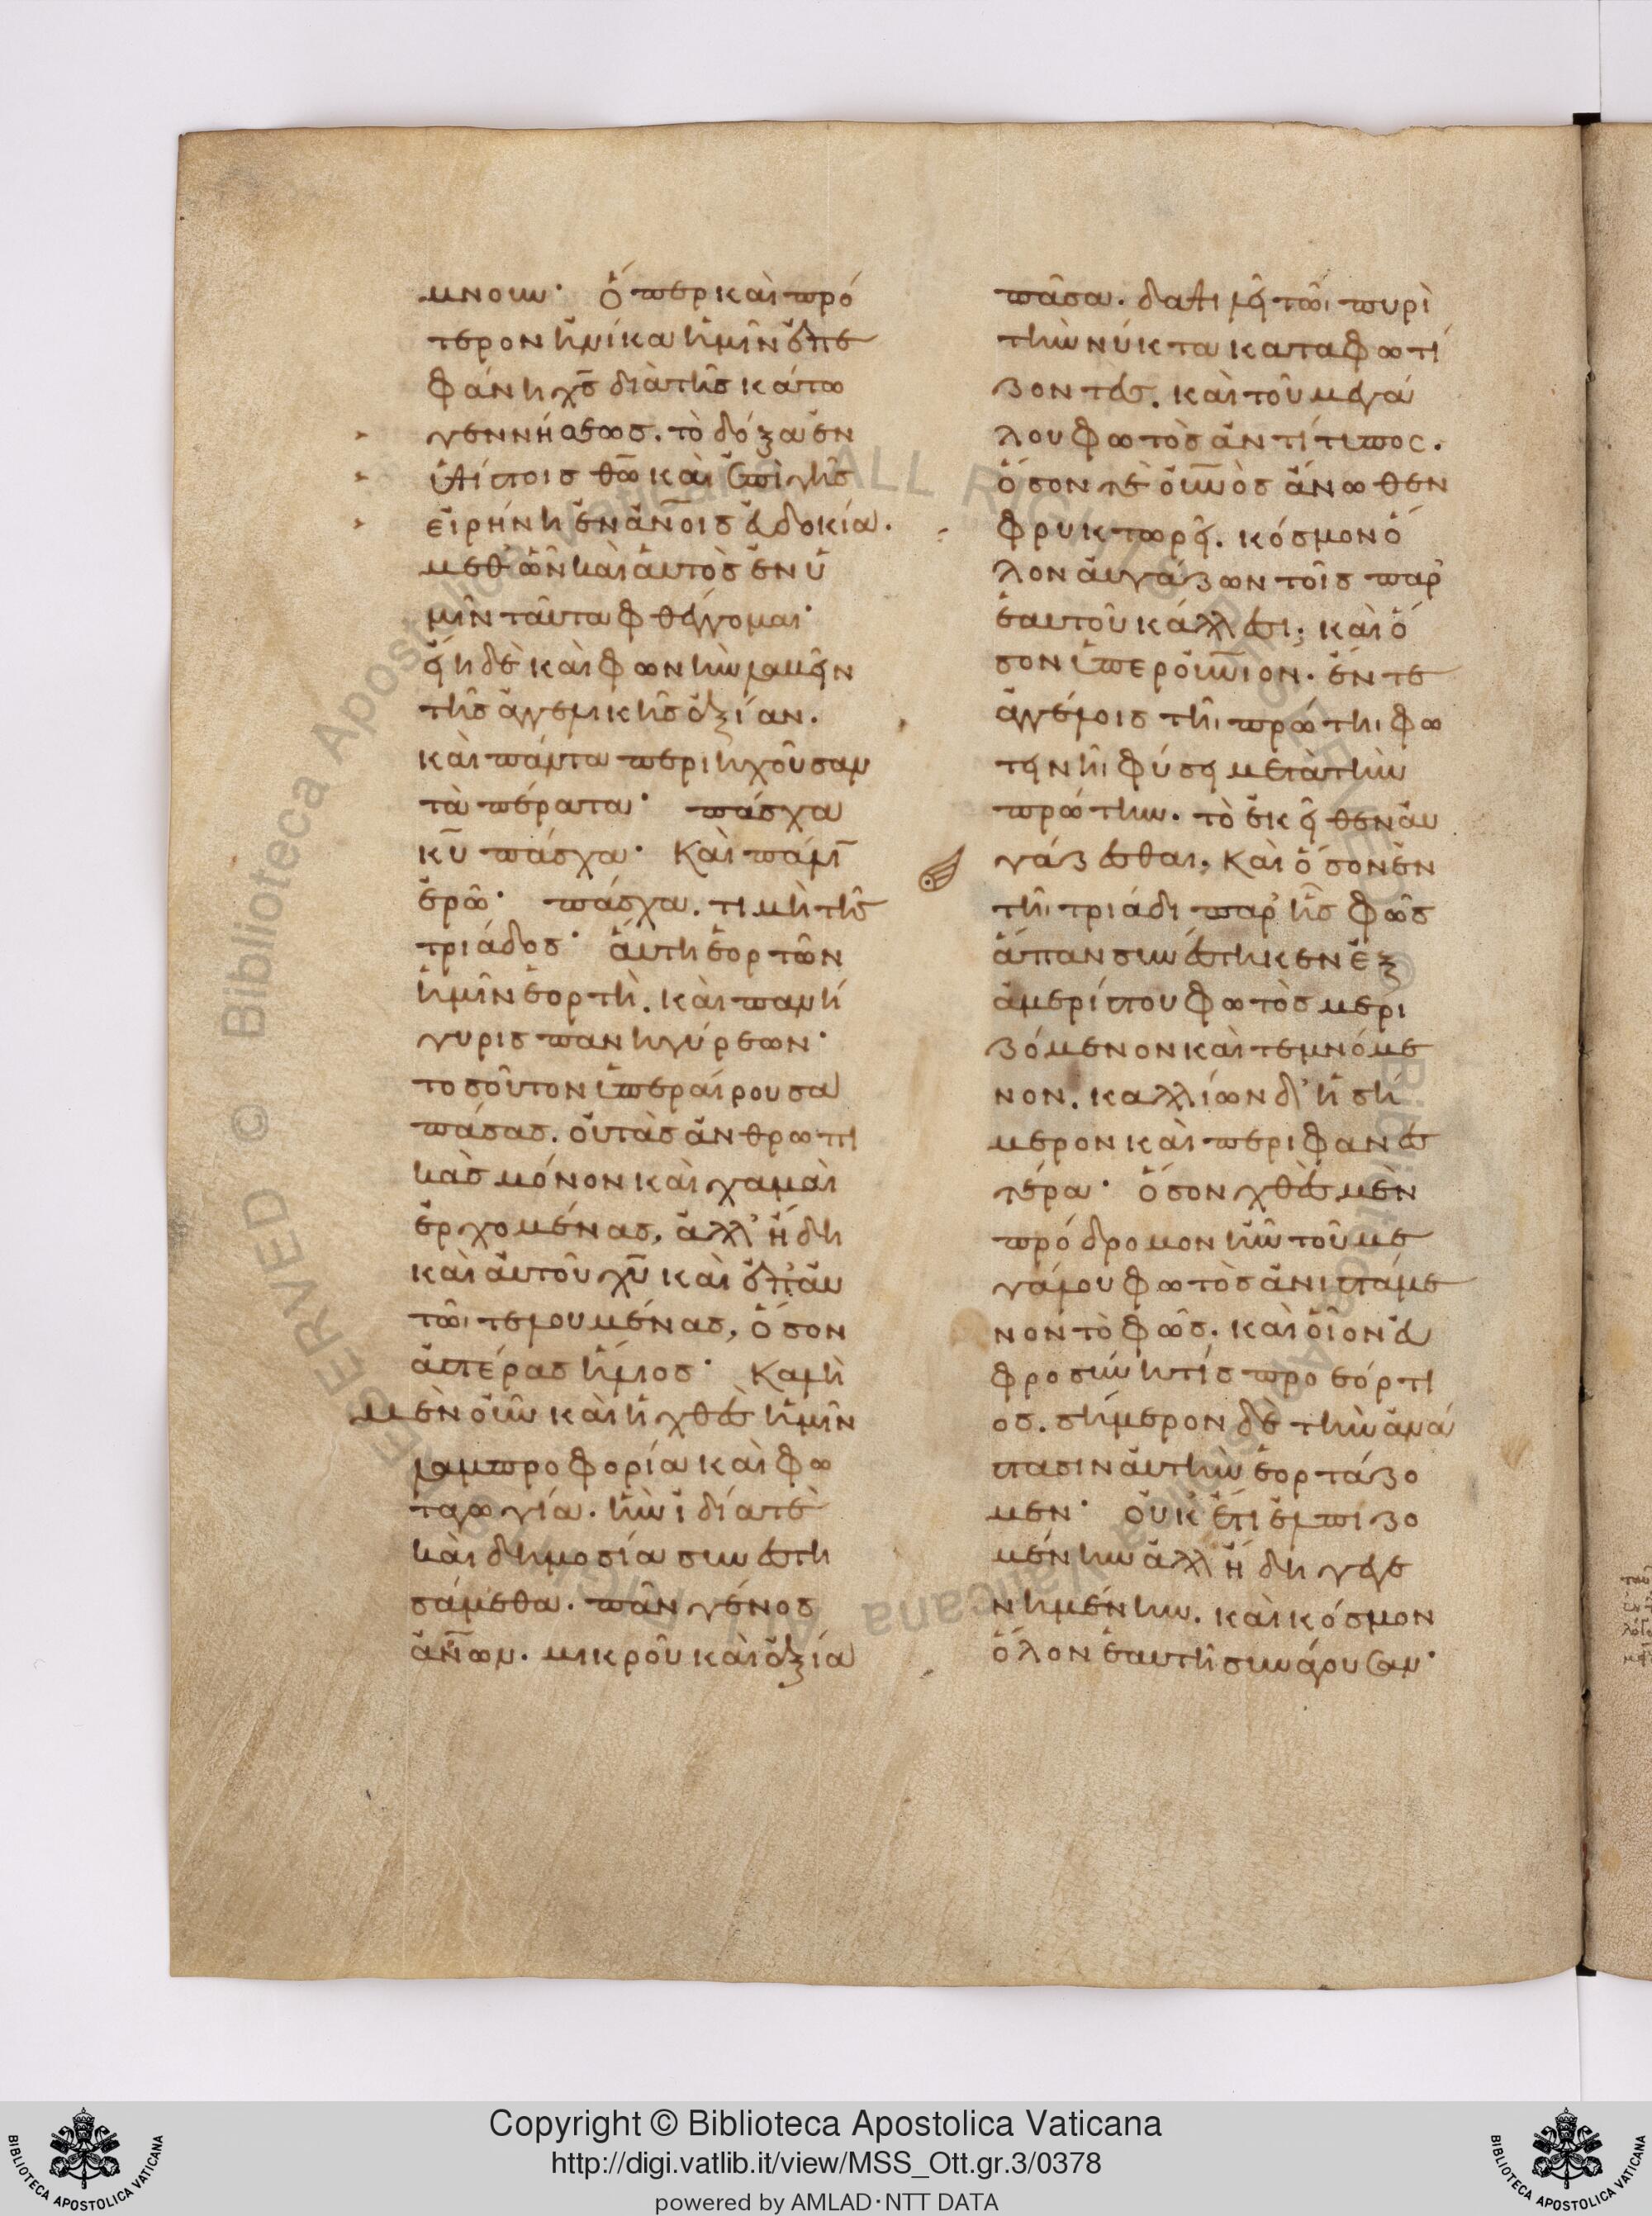 μνουν· ὅπερ καὶ πρό
τερον ἡνίκα ἡμῖν ἐπε
φάνη χς διὰ τῆς κάτω
γεννήσεως. τὸ δόξα ἐν
ὑψίστοις θω καὶ ἐπὶ γῆς
εἰρήνη ἐν ἀνοις εὐδοκία.
μεθ' ὧν καὶ αὐτὸς ἐν ὑ
μῖν ταῦτα φθέγγομαι·
εἴη δὲ καὶ φωνὴν λαβεῖν
τῆς ἀγγελικῆς ἀξίαν.
καὶ πάντα περιηχοῦσαν
τὰ πέρατα· πάσχα
κυ πάσχα· καὶ πάλι
ἐρῶ· πάσχα. τιμὴ τῆς
τριάδος· αὕτη ἑορτῶν
ἡμῖν ἑορτὴ. καὶ πανή
γυρις πανηγύρεων·
τοσοῦτον ὑπεραίρουσα
πάσας. οὐ τὰς ἀνθρωπι
κὰς μόνον καὶ χαμαὶ
ἐρχομένας, ἀλλ' ἤδη
καὶ αὐτοῦ χυ καὶ ἐπ' αὐ
τῶι τελουμένας, ὅσον
ἀστέρας ἥλιος· Καλὴ
μὲν οὖν καὶ ἡ χθὲς ἡμῖν
λαμπροφορία καὶ φω
ταγωγία. ἣν ἰδία τὲ
καὶ δημοσία συνεστη
σάμεθα. πᾶν γένος
ἀνων. μικροῦ καὶ ἀξία
πᾶσα. δαψιλεῖ τῶι πυρὶ
τὴν νύκτα καταφωτί
ζοντες. καὶ τοῦ μεγά
λου φωτὸς ἀντίτυπος.
ὅσον τὲ οὐνὸς ἄνωθεν
φρυκτωρεῖ. κόσμον ὅ
λον αὐγάζων τοῖς παρ'
ἑαυτοῦ κάλλεσι; καὶ ὅ
σον ὑπερουνιον. ἔν τε
ἀγγέλοις τῆι πρώτηι φω
τεινῆι φύσει μετὰ τὴν
πρώτην. τὸ ἐκεῖθεν αὐ
γάζεσθαι, καὶ ὅσον ἐν
τῆι τριάδι παρ' ἧς φῶς
ἅπαν συνέστηκεν ἐξ
ἀμερίστου φωτὸς μερι
ζόμενον καὶ τεμνόμε
νον. καλλίων δ' ἡ σή
μερον καὶ περιφανεσ
τέρα· ὅσον χθὲς μὲν
πρόδρομον ἦν τοῦ με
γάλου φωτὸς ἀνιστάμε
νον τὸ φῶς. καὶ οἷον εὐ
φροσύνη τίς προεόρτι
ος. σήμερον δὲ τὴν ἀνά
στασιν αὐτὴν ἑορτάζο
μεν· οὐκ ἔτι ἐλπιζο
μένην ἀλλ' ἤδη γεγε
νημένην. καὶ κόσμον
ὅλον ἑαυτῆ συνάγουσαν·
Copyright © Biblioteca Apostolica Vaticana
http://digi.vatlib.it/view/MSS_Ott.gr.3/0378
powered by AMLAD·NTT DATA